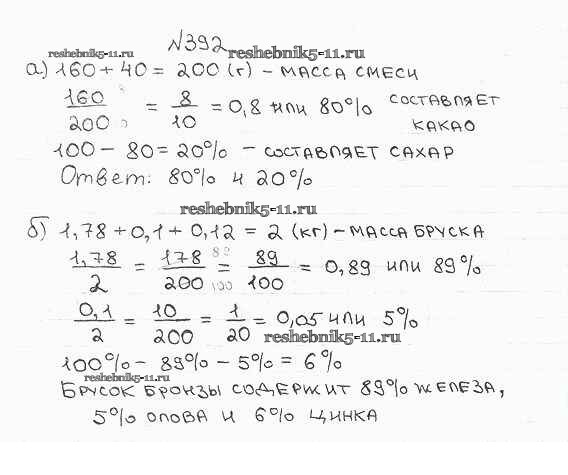 №392
reshebnik5-11.ru reshebnik5-11.ru
а) 160 + 40 = 200 (г) - МАССА СМЕСИ
160/200 = 8/10 = 0,8 или 80% СОСТАВЛЯЕТ
КАКАО
100 - 80 = 20% - СОСТАВЛЯЕТ САХАР
Ответ: 80% и 20%
reshebnik5-11.ru
б) 1,78 + 0,1 + 0,12 = 2 (кг) - МАССА БРУСКА
1,78/2 = 178/200 = 89/100 = 0,89 или 89%
0,1/2 = 10/200 = 1/20 = 0,05 или 5%
reshebnik5-11.ru
100% - 89% - 5% = 6%
reshebnik5-11.ru
БРУСОК БРОНЗЫ СОДЕРЖИТ 89% ЖЕЛЕЗА,
5% ОЛОВА И 6% ЦИНКА